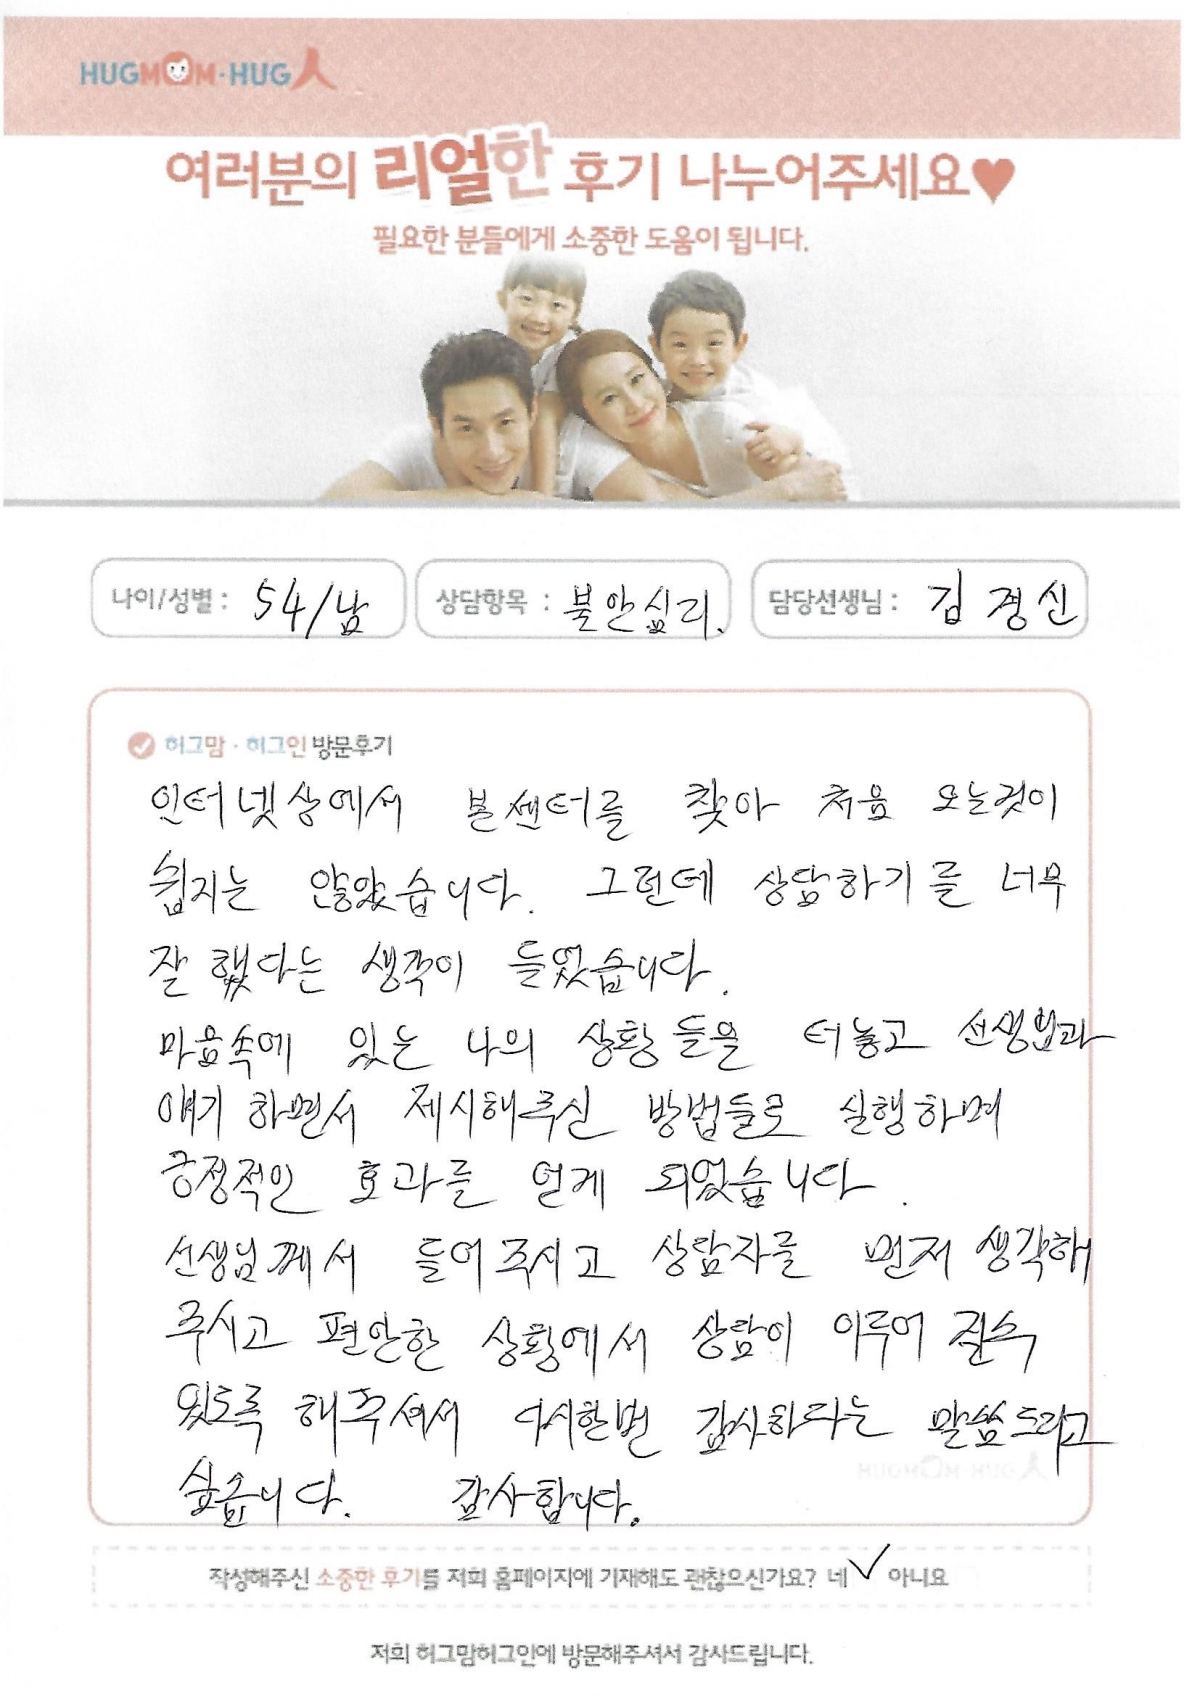 HUGMOM·HUG人
여러분의 리얼한 후기 나누어주세요♥
필요한 분들에게 소중한 도움이 됩니다.
나이/성별 : 54/남 상담항목 : 불안심리. 담당선생님 : 김경신
허그맘·허그인 방문후기
인터넷상에서 본센터를 찾아 처음 오는것이
쉽지는 않았습니다. 그런데 상담하기를 너무
잘 했다는 생각이 들었습니다.
마음속에 있는 나의 상황들을 터놓고 선생님과
얘기 하면서 제시해주신 방법들로 실행하며
긍정적인 효과를 얻게 되었습니다.
선생님께서 들어주시고 상담자를 먼저 생각해
주시고 편안한 상황에서 상담이 이루어 질수
있도록 해주셔서 다시한번 감사하다는 말씀드리고
싶습니다. 감사합니다.
작성해주신 소중한 후기를 저희 홈페이지에 기재해도 괜찮으신가요? 네 ✓ 아니요
저희 허그맘허그인에 방문해주셔서 감사드립니다.